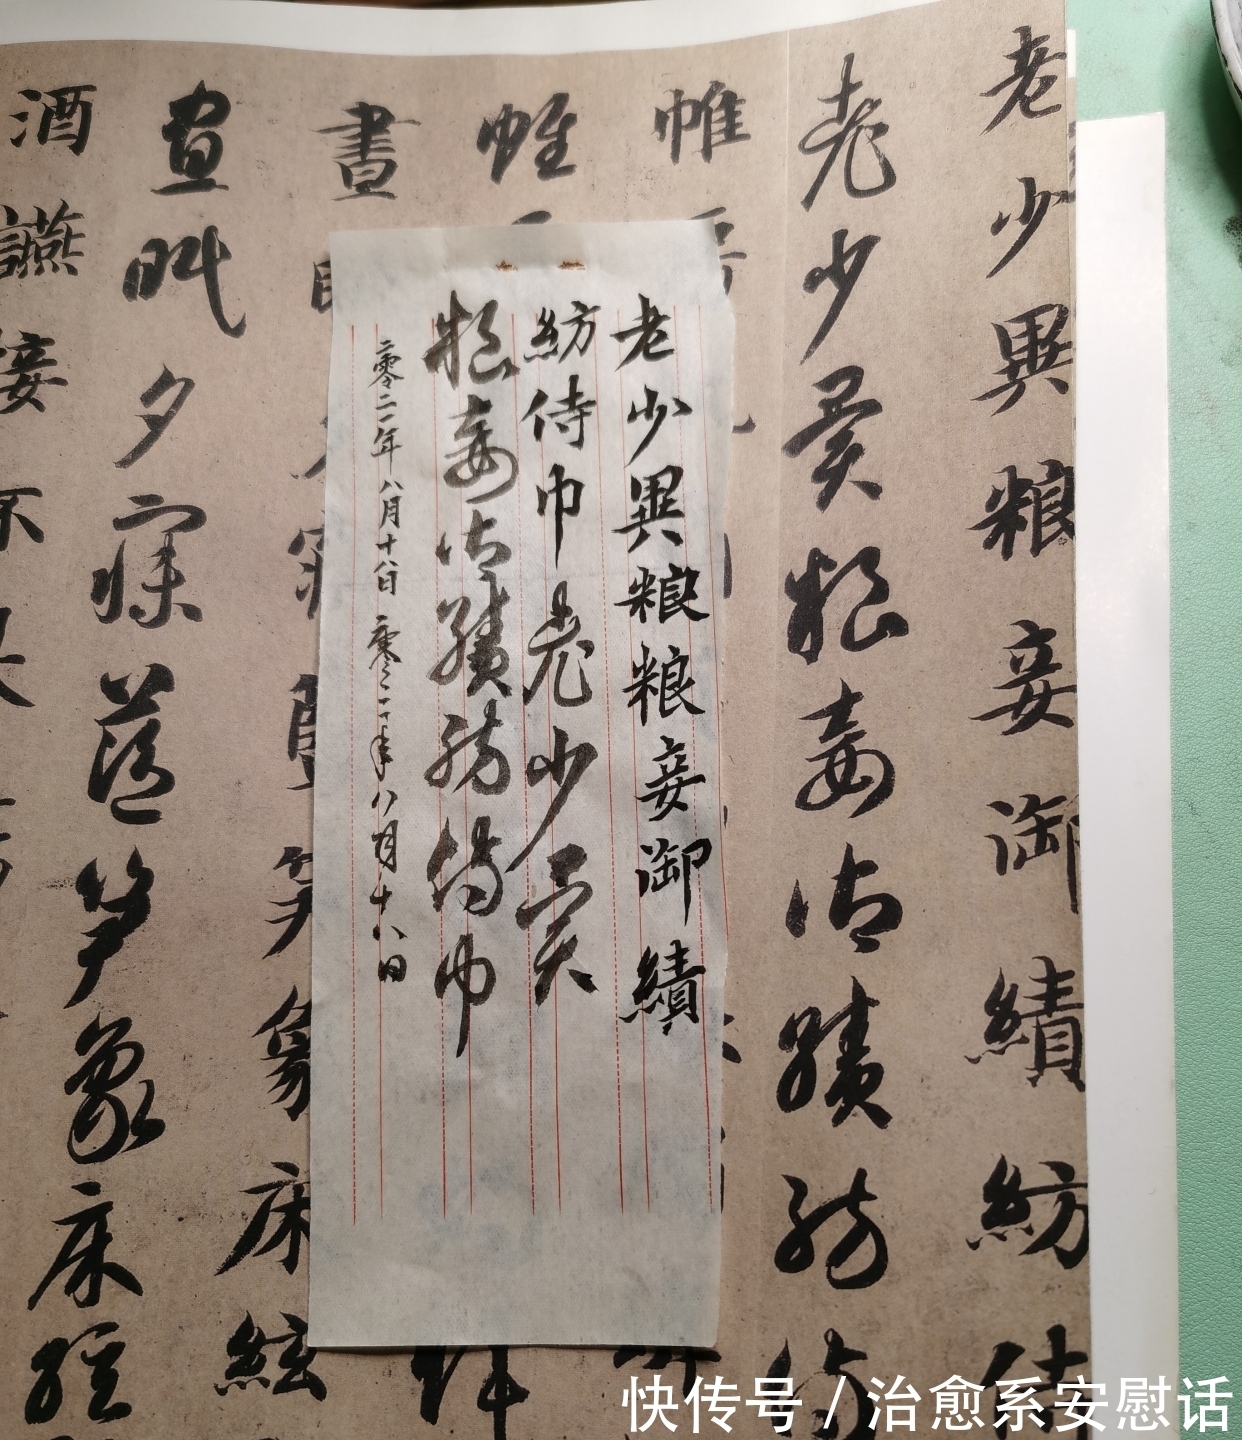 老少異粮妾御績紡侍
老少異粮妾御績紡侍
帷
帷
晝
笋象床絃
晝眠夕寐藍笋象床絃
酒讌接
老少異粮粮妾御績
紡侍巾老少異
粮妾御績紡侍巾
二零二一年八月十八日 二零二一年八月十八日
快传号 / 治愈系安慰话